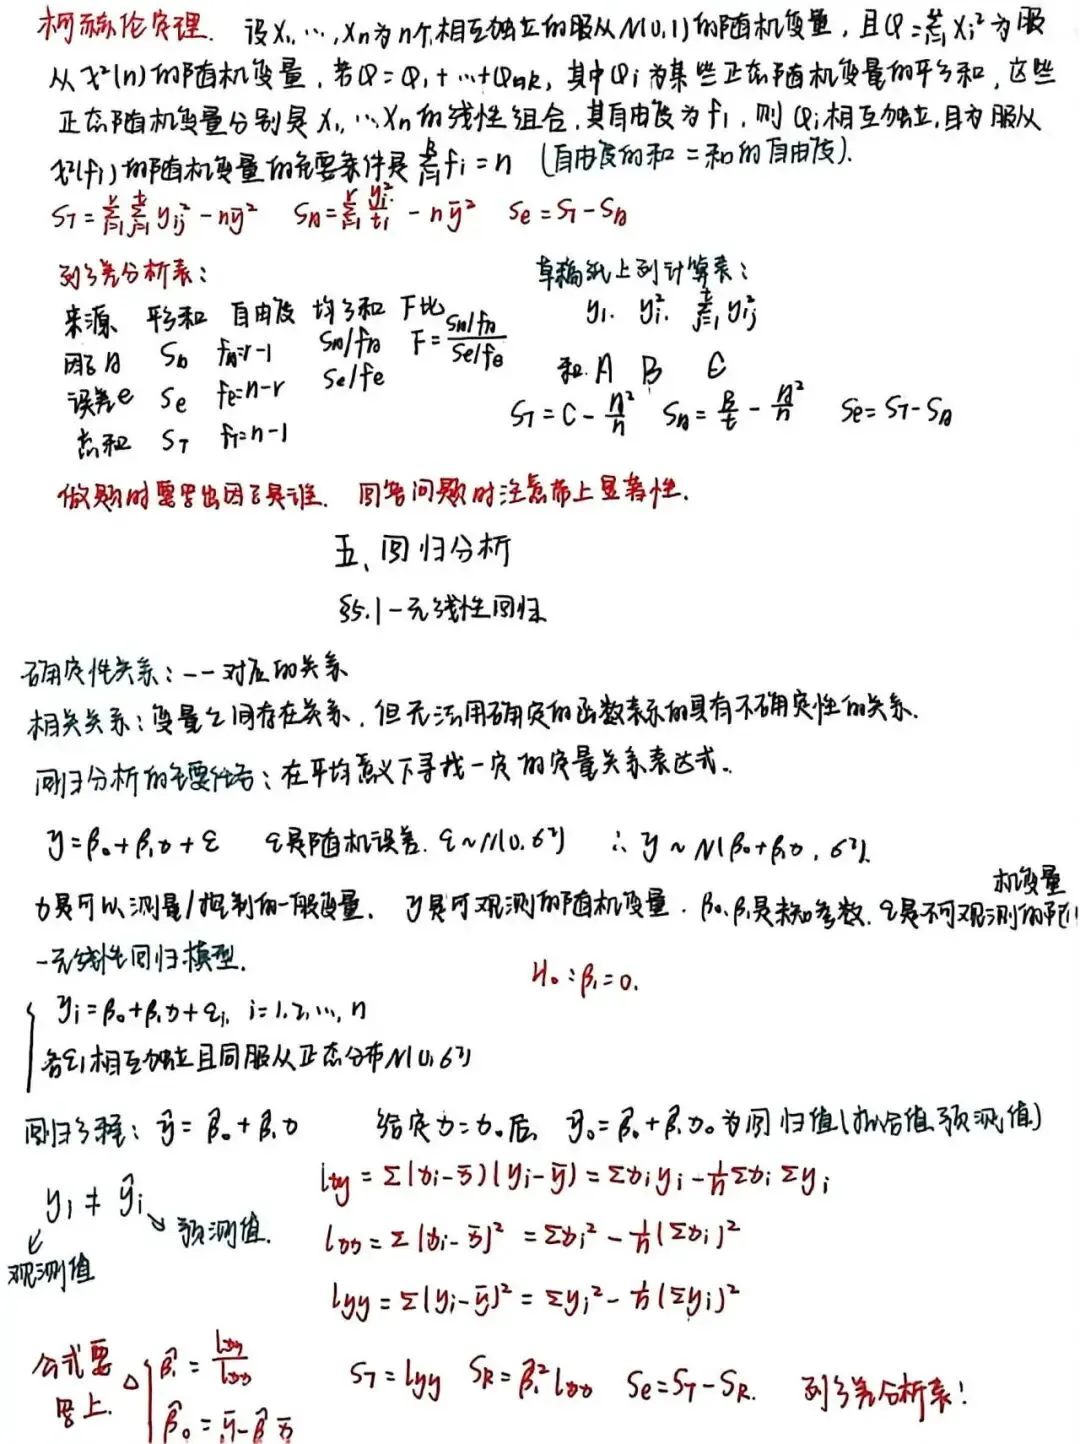 柯赫伦定理. 设X₁,…,Xn为n个相互独立的服从N(0,1)的随机变量,且Q=∑ᵢ₌₁ⁿXᵢ²为服
从χ²(n)的随机变量,若Q=Q₁+…+Qk,其中Qᵢ为某些正态随机变量的平方和,这些
正态随机变量分别是X₁,…Xn的线性组合,其自由度为fᵢ,则Qᵢ相互独立,且为服从
χ²(fᵢ)的随机变量的充要条件是∑ᵢ₌₁ᵏfᵢ=n (自由度的和=和的自由度).
S_T=∑ᵢ₌₁ʳ∑ⱼ₌₁ᵗ yᵢⱼ²-nȳ² S_A=∑ᵢ₌₁ʳ yᵢ.²/tᵢ - nȳ² Se=S_T-S_A
列方差分析表: 草稿纸上列计算表:
来源 平方和 自由度 均方和 F比 yᵢ. yᵢ.² ∑ⱼ₌₁ᵗ yᵢⱼ²
因子A S_A f_A=r-1 S_A/f_A F=(S_A/f_A)/(Se/fe) 和 A B C
误差e Se fe=n-r Se/fe S_T=C-A²/n S_A=B/t-A²/n Se=S_T-S_A
总和 S_T f_T=n-1
做题时要写出因子是谁. 回答问题时注意带上显著性.
五、回归分析
§5.1 一元线性回归
确定性关系:一一对应的关系
相关关系:变量之间存在关系,但无法用确定的函数表示的具有不确定性的关系.
回归分析的主要任务:在平均意义下寻找一定的定量关系表达式.
y=β₀+β₁x+ε ε是随机误差. ε~N(0,σ²) ∴y~N(β₀+β₁x,σ²).
x是可以测量/控制的一般变量. y是可观测的随机变量. β₀,β₁是未知参数. ε是不可观测的随机变量
一元线性回归模型. H₀:β₁=0.
yᵢ=β₀+β₁x+εᵢ, i=1,2,…,n
各εᵢ相互独立且同服从正态分布N(0,σ²)
回归方程:ŷ=β̂₀+β̂₁x 给定x=x₀后 ŷ₀=β̂₀+β̂₁x₀为回归值(拟合值.预测值)
yᵢ≠ŷᵢ
观测值 预测值.
lxy=∑(xᵢ-x̄)(yᵢ-ȳ)=∑xᵢyᵢ-1/n∑xᵢ∑yᵢ
lxx=∑(xᵢ-x̄)²=∑xᵢ²-1/n(∑xᵢ)²
lyy=∑(yᵢ-ȳ)²=∑yᵢ²-1/n(∑yᵢ)²
公式要写上. △ β̂₁=lxy/lxx
β̂₀=ȳ-β̂x̄
S_T=lyy S_R=β̂₁²lxx Se=S_T-S_R. 列方差分析表!